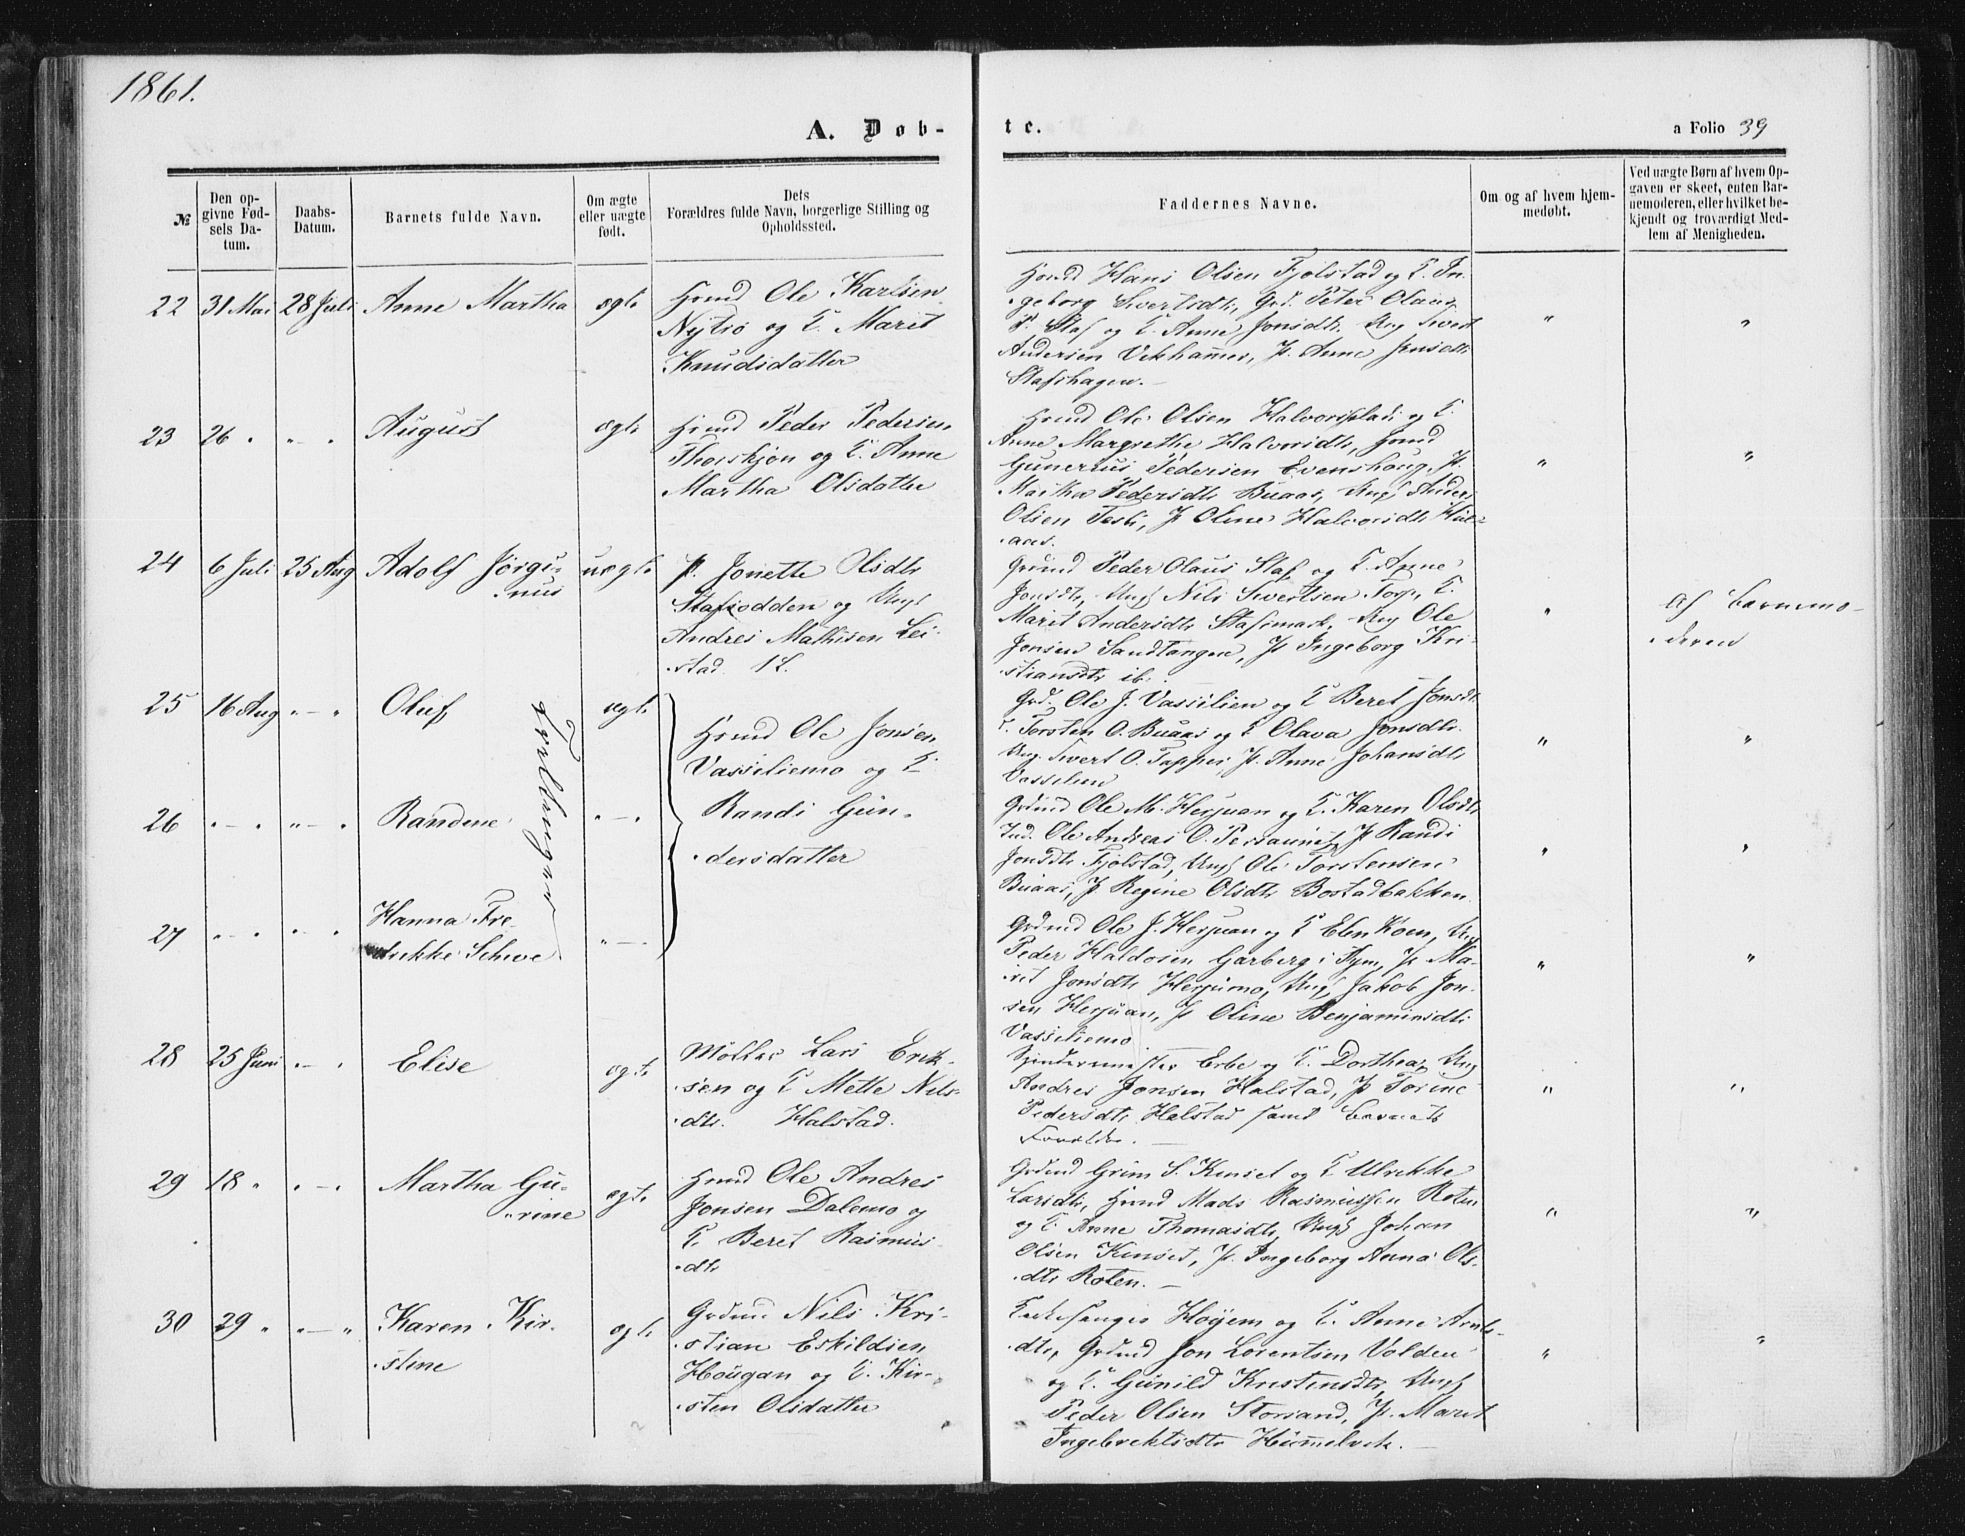 1861.
A. Døb-
te.
a Folio 39
№
Den op-
givne Fød-
sels Da-
tum.
Daabs-
Datum.
Barnets fulde Navn.
Om ægte
eller uægte
født.
Dets
Forældres fulde Navn, borgerlige Stilling og
Opholdssted.
Faddernes Navne.
Om og af hvem hjem-
medøbt.
Ved uægte Børn af hvem Op-
gaven er skeet, enten Bar-
nemoderen, eller hvilket be-
kjendt og troværdigt Med-
lem af Menigheden.
22 31 Mai 28 Juli Anne Martha ægte
Hmd Ole Karlsen
Nytrø og K. Marit
Knudsdatter
Hmd Hans Olsen Fjølstad og K. In-
geborg Sivertsdtr, Grd. Peter Olaus
P. Staf og K. Anne Jonsdtr. Ung Sivert
Andersen Vikhamer, P. Anne Jensdtr
Stafshagen.
" "
23 26 " " - " August ægte
Hmd Peder Pedersen
Thorskjøn og K. Anne
Martha Olsdatter
Hmd Ole Olsen Halvorsplads og K.
Anne Margrethe Halvorsdtr, Hmd
Gunerius Pedersen Evenshaug, P.
Martha Pedersdtr Buaas, Ung Anders
Olsen Festi, P Oline Halvorsdtr
aas.
" "
24 6 Juli 25 Aug Adolf Jørgi-
nus
uægte
P. Jonette Olsdtr
Stafsodden og Ungk
Andres Mathisen Lei-
stad 1 L.
Grdmd Peder Olaus Staf og K. Anne
Jonsdtr, Ungk Nils Sivertsen Torp, K.
Marit Andersdtr Stafsmark, Ung Ole
Jonsen Sandtangen, P Ingeborg Kri-
stiansdtr ib.
"
Af Barnemo-
deren
25 16 Aug " - " Oluf ægte
Trillinger
Hmd Ole Jonsen
Vassiliemo og K
Randi Gun-
dersdatter
Grd. Ole J. Vassilien og K Beret Jonsdtr.
Torsten O. Buaas og K Olava Jonsdtr.
Ung Sivert O. Tapper, P. Anne Johansdtr
Vassilien
" "
26 " - " " - " Randine " - "
Grdmd Ole M. Herjuan og K. Karen Olsdtr
Ole Andreas O. Persaunet, P Randi
Jonsdtr Fjølstad, Ungk Ole Torstensen
Buaas, P Regine Olsdtr Bostadbakken
" "
27 " - " " - " Hanna Fre-
drikke Schive
" - "
Grdmd Ole J. Herjuan og K Elen Koen, Ung
Peder Haldosen Garberg i Kjm, P. Ma-
rit Jonsdtr Herjuamo, Ungk Jakob Jon-
sen Herjuan, P Oline Benjaminsdtr
Vassiliemo
" "
28 25 Juni " - " Elise ægte
Møller Lars Erik-
sen og K Mette Nils-
dtr. Halstad.
Erbe og K Dorthea, Ung
Andres Jonsen Halstad, P Torine
Pedersdtr Halstad samt Barnets
Forældre.
" "
29 18 " " - " Martha Gu-
rine
ægte
Hmd Ole Andres
Jonsen Dalemo og
K. Beret Rasmus-
dtr
Grdmd Grim S. Kinset og K Ulrikke
Larsdtr, Hmd Mads Rasmussen Roten
og K. Anne Thomasdtr, Ungk Johan
Olsen Kinset, P. Ingeborg Anna Ols-
dtr Roten.
" "
30 29 " " - " Karen Kir-
stine
ægte
Grdmd Nils Kri-
stian Eskildsen
Hougan og K. Kir-
sten Olsdatter
Kirkesanger Høyem og K. Anne Arnts-
dtr, Grdmd Jon Lorentsen Volden
og K. Gunild Kristensdtr, Ungk
Peder Olsen Storsand, P. Marit
Ingebrektsdtr Hummelvik.
" "